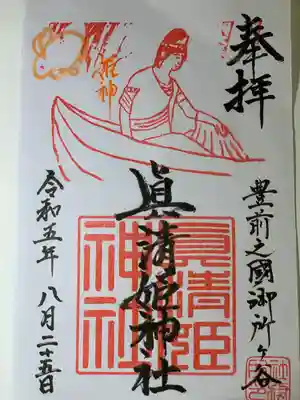 奉拝
豊前之國御所ヶ谷
姫神
眞清姫神社
眞清姫
神社
令和五年 八月二十五日